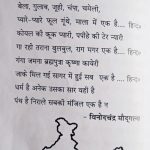 बेला, गुलाब, जूही, चंपा, चमेली,
प्यारे-प्यारे फूल गूंथे, माला में एक है.... हिन्द०
कोयल की कूक न्यारी, पपीहे की टेर प्यारी
गा रही तराना बुलबुल, राग मगर एक है.... हिन्द०
गंगा जमना ब्रह्मपुत्रा कृष्णा कावेरी
जाके मिल गई सागर में हुई सब एक है .... हिन्द०
धर्म हैं अनेक उसका सार वही है
पंथ है निराले सबकी मंजिल एक है न
- विनोगचंद्र मौदगाल्य